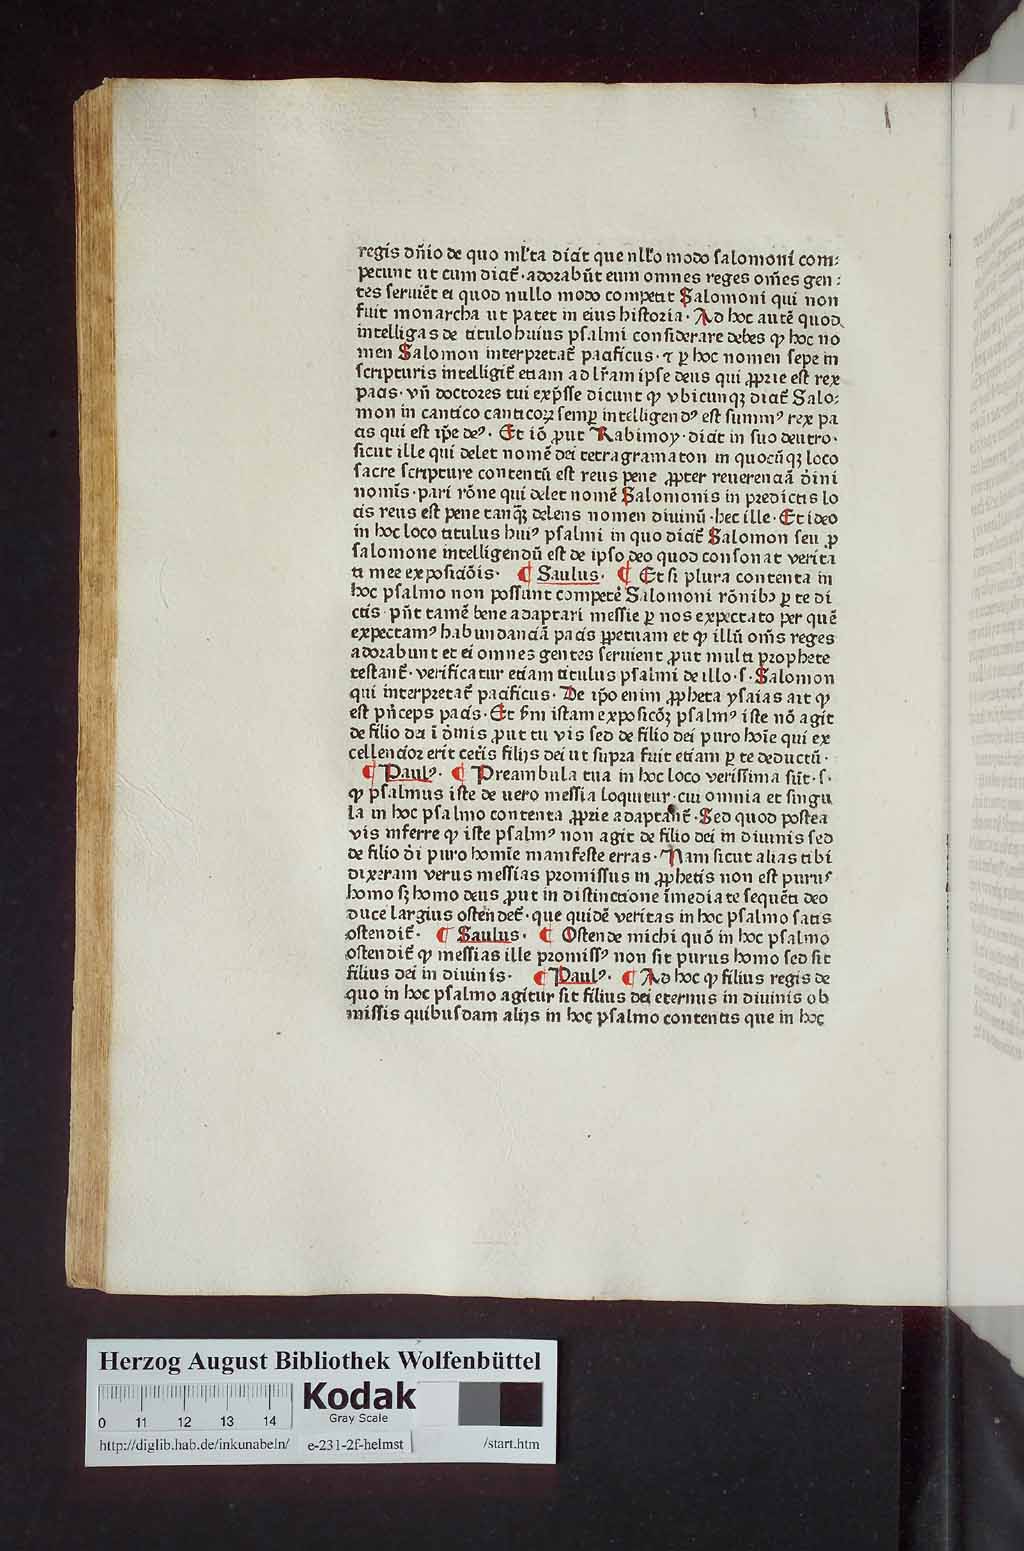 regis dn̄io de quo ml'ta dicit que nll'o modo salomoni com:
petunt ut cum dicit᷑ · adorabūt eum omnes reges om̄es gen:
tes seruiēt ei quod nullo modo competit Salomoni qui non
fuit monarcha ut patet in eius historia · Ad hoc autē quod
intelligas de titulo huius psalmi considerare debes ꝙ hoc no
men Salomon interpretat᷑ pacificus · ⁊ ꝑ hoc nomen sepe in
scripturis intelligit᷑ etiam ad lr̄am ipse deus qui ꝓprie est rex
pacis · vn̄ doctores tui exp̄sse dicunt ꝙ vbicunqꝫ dicit᷑ Salo:
mon in cantico canticoꝝ semꝑ intelligendꝰ est summꝰ rex pa
cis qui est ip̄e deꝰ · Et iō ꝓut Rabimoy · dicit in suo deutro ·
sicut ille qui delet nomē dei tetragramaton in quocūqꝫ loco
sacre scripture contentū est reus pene ꝓpter reuerenciā d̄ini
nomīs · pari rōne qui delet nomē Salomonis in predictis lo
cis reus est pene tanqꝫ delens nomen diuinū · hec ille · Et ideo
in hoc loco titulus huiꝰ psalmi in quo dicit᷑ Salomon seu ꝓ
salomone intelligendū est de ipso deo quod consonat verita
ti mee exposiciōis · ¶ Saulus · ¶ Et si plura contenta in
hoc psalmo non possunt competē Salomoni rōnibꝫ ꝑ te di
ctis · pn̄t tamē bene adaptari messie ꝑ nos expectato per quē
expectamꝰ habundanciā pacis ꝑpetuam et ꝙ illū om̄s reges
adorabunt et ei omnes gentes seruient ꝓut multi prophete
testant᷑ · verificatur etiam titulus psalmi de illo · s · Salomon
qui interpretat᷑ pacificus · De ip̄o enim ꝓpheta ysaias ait ꝙ
est pn̄ceps pacis · Et s̄m istam exposicōꝫ psalmꝰ iste nō agit
de filio dei ī d̄inis ꝓut tu vis sed de filio dei puro hoīe qui ex
cellencior erit cet̄is filijs dei ut supra fuit etiam ꝑ te deductū ·
¶ Paulꝰ · ¶ Preambula tua in hoc loco verissima sūt · s ·
ꝙ psalmus iste de uero messia loquitur · cui omnia et singu
la in hoc psalmo contenta ꝓprie adaptant᷑ · Sed quod postea
vis inferre ꝙ iste psalmꝰ non agit de filio dei in diuinis sed
de filio d̄i puro homīe manifeste erras · Nam sicut alias tibi
dixeram verus messias promissus in ꝓphetis non est purus
homo sꝫ homo deus ꝓut in distinctione īmediate sequēti deo
duce largius ostendet᷑ · que quidē veritas in hoc psalmo satis
ostendit᷑ · ¶ Saulus · ¶ Ostende michi quō in hoc psalmo
ostendit᷑ ꝙ messias ille promissꝰ non sit purus homo sed sit
filius dei in diuinis · ¶ Paulꝰ · ¶ Ad hoc ꝙ filius regis de
quo in hoc psalmo agitur sit filius dei eternus in diuinis ob
missis quibusdam alijs in hoc psalmo contentis que in hoc
Herzog August Bibliothek Wolfenbüttel
Kodak
Gray Scale
0 11 12 13 14
http://diglib.hab.de/inkunabeln/ e-231-2f-helmst /start.htm